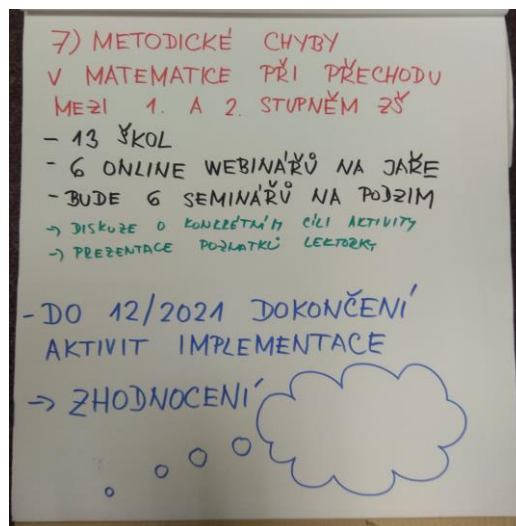 7) METODICKÉ CHYBY
V MATEMATICE PŘI PŘECHODU
MEZI 1. A 2. STUPNĚM ZŠ
- 13 ŠKOL
- 6 ONLINE WEBINÁŘŮ NA JAŘE
- BUDE 6 SEMINÁŘŮ NA PODZIM
→ DISKUZE O KONKRÉTNÍM CÍLI AKTIVITY
→ PREZENTACE POZNATKŮ LEKTORKY
- DO 12/2021 DOKONČENÍ
AKTIVIT IMPLEMENTACE
→ ZHODNOCENÍ